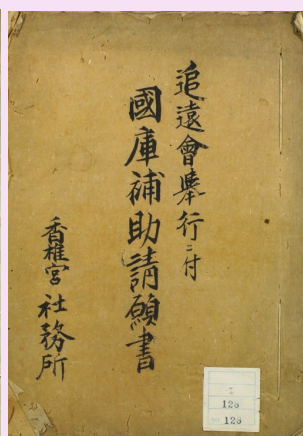 追遠會擧行ニ付
國庫補助請願書
香椎宮社務所
126
123